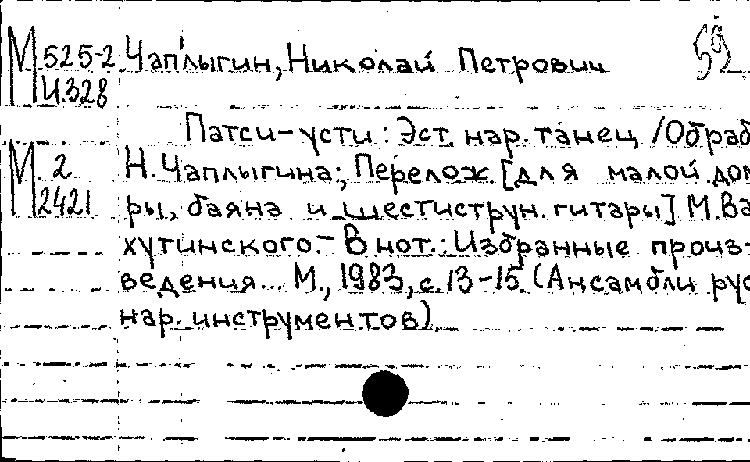 М 525-2 Чаплыгин, Николай Петрович
Ч.328
Патси-усти: Эст. нар. танец /Обраб
М. 2 Н. Чаплыгина; Перелож. [для малой дом
2421 ры, баяна и шестиструн. гитары] М. Ва
хутинского. - В нот.: Избранные произ-
ведения... М., 1983, с. 13-15. (Ансамбли рус
нар. инструментов)